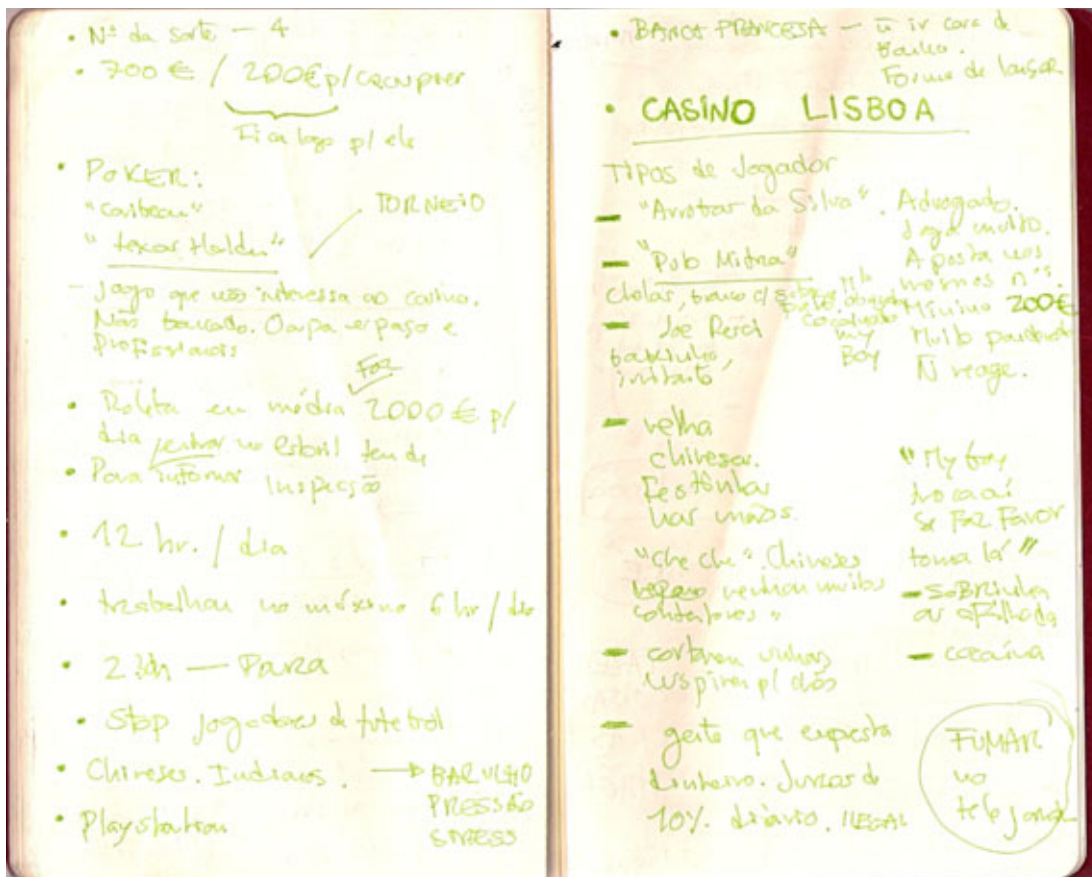 • Nº da sorte — 4
• 700 € / 200€ p/ croupier
Fica logo p/ ele
• POKER:
TORNEIO
— Jogo que não interessa ao casino.
Não bancado. Ocupa espaço e
profissionais
Faz
• Roleta em média 2000 € p/
dia
/entrar no Estoril tem de
• Para informar inspecção
• 12 hr. / dia
• trabalham no máximo 6 hr / dia
• 23h — Para
• Stop jogadores de futebol
• Chineses. Indianos. → BARULHO
PRESSÃO
STRESS
• Playstation
• BANCA FRANCESA — ir cara de
Forma de lançar
• CASINO LISBOA
Tipos de Jogador
— "Arrotar da Silva". Advogado.
Joga muito.
Aposta nos
mesmos nºs
Mínimo 200€
Muito
Ñ reage.
— "Pub Mitra"
my
Boy
— Joe Pesci
baixinho,
irritante
— velha
chinesa.
nas mãos.
"che che". Chineses
contentores"
— cortarem unhas
cuspirem p/ chão
— gente que empresta
dinheiro. Juros de
10% diário. ILEGAL
"My boy
troca aí
se faz favor
toma lá"
— sobrinha
ou afilhada
— cocaína
FUMAR
no